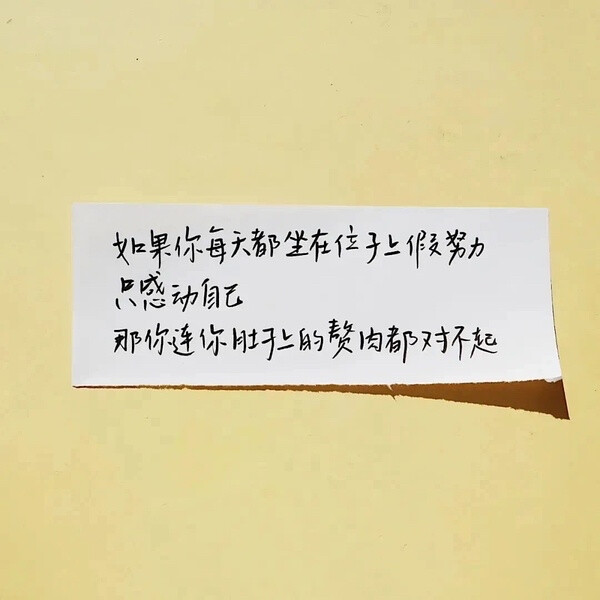 如果你每天都坐在位子上假努力
只感动自己
那你连你肚子上的赘肉都对不起